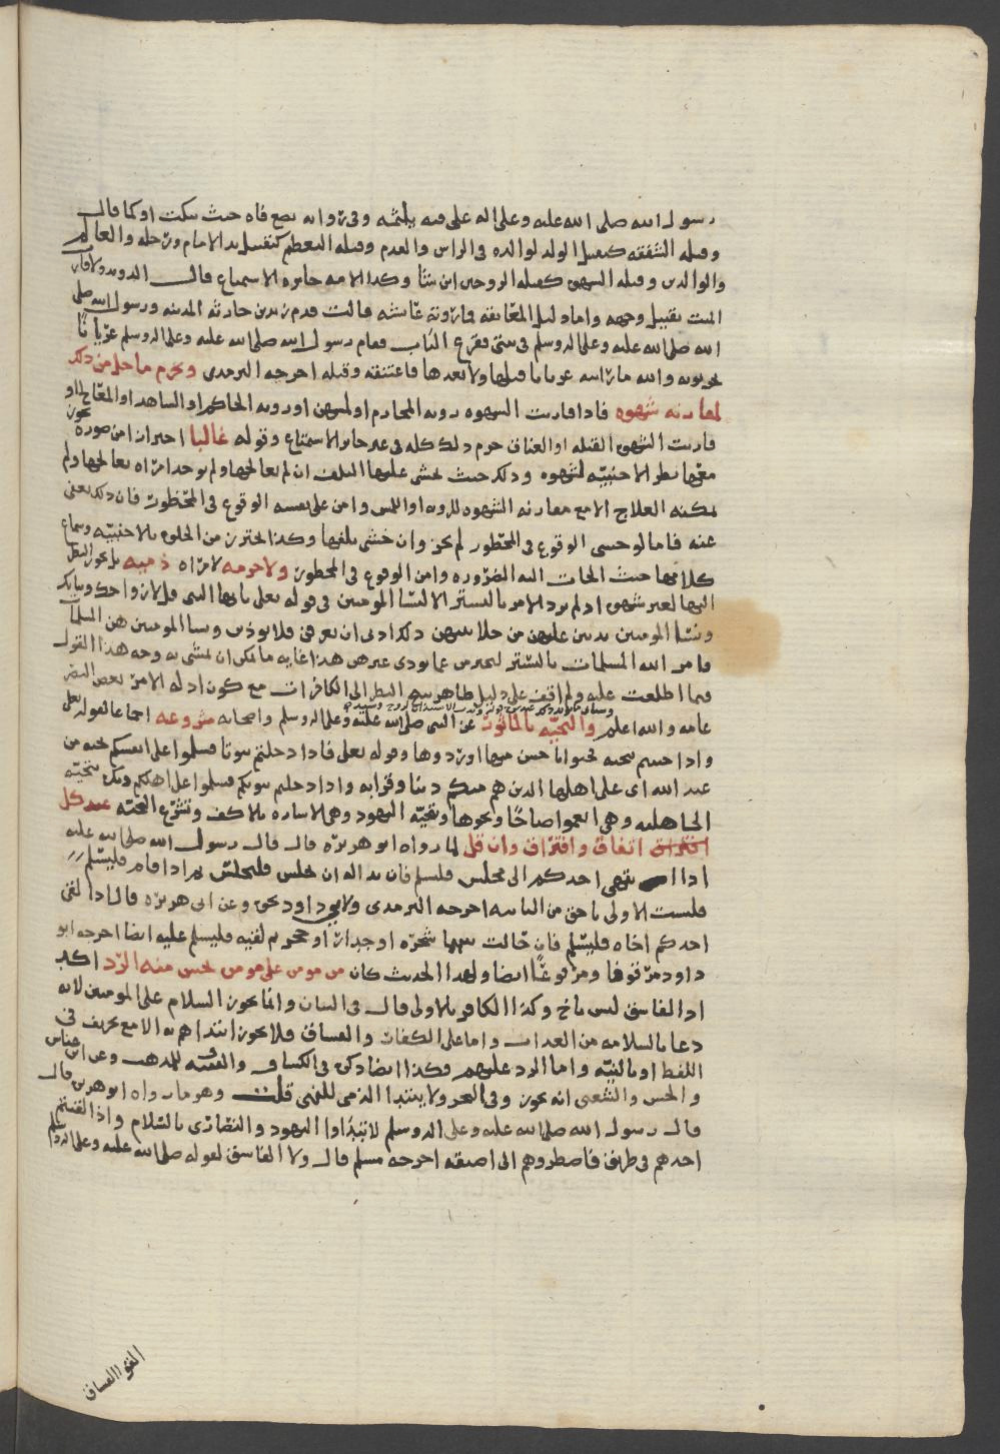 رسول الله صلى الله عليه وعلى اله على فيه يلثمه وفي رواية يضع فاه حيث سكت او كما قال
وقبله الشفقه كتقبيل الولد لوالده في الراس والقدم وقبله التعظيم كتقبيل يد الامام ورجله والعالم
والوالدين وقبله الشهوه كقبله الزوجين ان شآ وكذا الامه جايزه الاستمتاع قال
الميت بتقبيل وجهه واما دليل المعانقه فما روته عايشه قالت قدم زيد بن حارثه المدينه ورسول الله صلى
الله صلى الله عليه وعلى اله وسلم في بيتي فقرع الباب فقام رسول الله صلى الله عليه وعلى اله وسلم عريانا
يجر ثوبه والله ما رايته عريانا قبلها ولا بعدها فاعتنقه وقبله اخرجه الترمذي ويحرم ما حل من ذلك
لمقارنه شهوه فاذا قارنت الشهوه رويه المحارم او لمسهن او رويه الحاكم او الشاهد او المعالج او
قارنت الشهوه القبله او العناق حرم ذلك كله في غير جايز الاستمتاع وقوله غالبا احتراز من صوره يجوز
معها نظر الاجنبيه لشهوه وذلك حيث يخشى عليها التلف ان لم يعالجها ولم يوجد امراه تعالجها ولم
يمكنه العلاج الا مع مقارنه الشهوه للرويه او اللمس وامن على نفسه الوقوع في المحظور فان ذلك يعفى
عنه فاما لو خشي الوقوع في المحظور لم يجز وان خشي تلفها وكذا احترز من الخلوه بالاجنبيه وسماع
كلامها حيث الجات اليه الضروره وامن الوقوع في المحظور ولا حرمه لامراه ذميه بل يجوز النظر
اليها لغير شهوه اذ لم يرد الامر بالتستر الا لنسا المومنين في قوله تعلى يايها النبي قل لازواجك وبناتك
ونسا المومنين يدنين عليهن من جلابيبهن ذلك ادنى ان يعرفن فلا يوذين ونسا المومنين هن المسلمات
فامر الله المسلمات بالتستر ليحترس عما يوذي غيرهن هذا غايه ما يمكن ان يمشى به وجه هذا القول
فما اطلعت عليه ولم اقف على دليل ظاهر يبيح النظر الى الكافرات مع كون ادله الامر بغض البصر
عامه والله اعلم والتحيه بالماثور عن النبي صلى الله عليه وعلى اله وسلم واصحابه مشروعه اجماعا لقوله تعلى
واذا حييتم بتحيه فحيوا باحسن منها او ردوها وقوله تعلى فاذا دخلتم بيوتا فسلموا على انفسكم تحيه من
عند الله اي على اهلها الذين هم منكم دينا وقرابه واذا دخلتم بيوتكم فسلموا على اهلكم تحيه
الجاهليه وهي انعموا صباحًا ونحوها وتحيه اليهود وهي الاشاره بالاكف وتشرع التحيه عند كل
اتفاق وافتراق وان قل لما رواه ابو هريره قال قال رسول الله صلى الله عليه
اذا انتهى احدكم الى مجلس فليسلم فان بدا له ان يجلس فليجلس ثم اذا قام فليسلم
فليست الاولى باحق من الثانيه اخرجه الترمذي ولابي داود نحوه وعن ابي هريره قال اذا لقي
احدكم اخاه فليسلم فان حالت بينهما شجره او جدار او حجر ثم لقيه فليسلم عليه ايضا اخرجه ابو
داود مرقوفا ومرفوعًا ايضا ولهذا الحديث كان من مومن على مومن يحسن منه الرد
اذ الفاسق ليس باخ وكذا الكافر بالاولى قال في البيان وانما يجوز السلام على المومنين لانه
دعا بالسلامه من العذاب واما على الكفار والفساق فلا يجوز ابتداهم به الا مع تحريف في
اللفظ او بالنيه واما الرد عليهم فكذا ايضا ذكره في الكشاف والفقيه للمذهب وعن ابن عباس
والحسن والشعبي انه يجوز وفي البحر ولا يبتدا الذمي للنهي قلت وهو ما رواه ابو هريره قال
قال رسول الله صلى الله عليه وعلى اله وسلم لا تبدًاوا اليهود والنصارى بالسلام واذا لقيتم
احدهم في طريق فاضطروهم الى اضيقه اخرجه مسلم قال ولا الفاسق لقوله صلى الله عليه وعلى اله وسلم
القوا الفساق